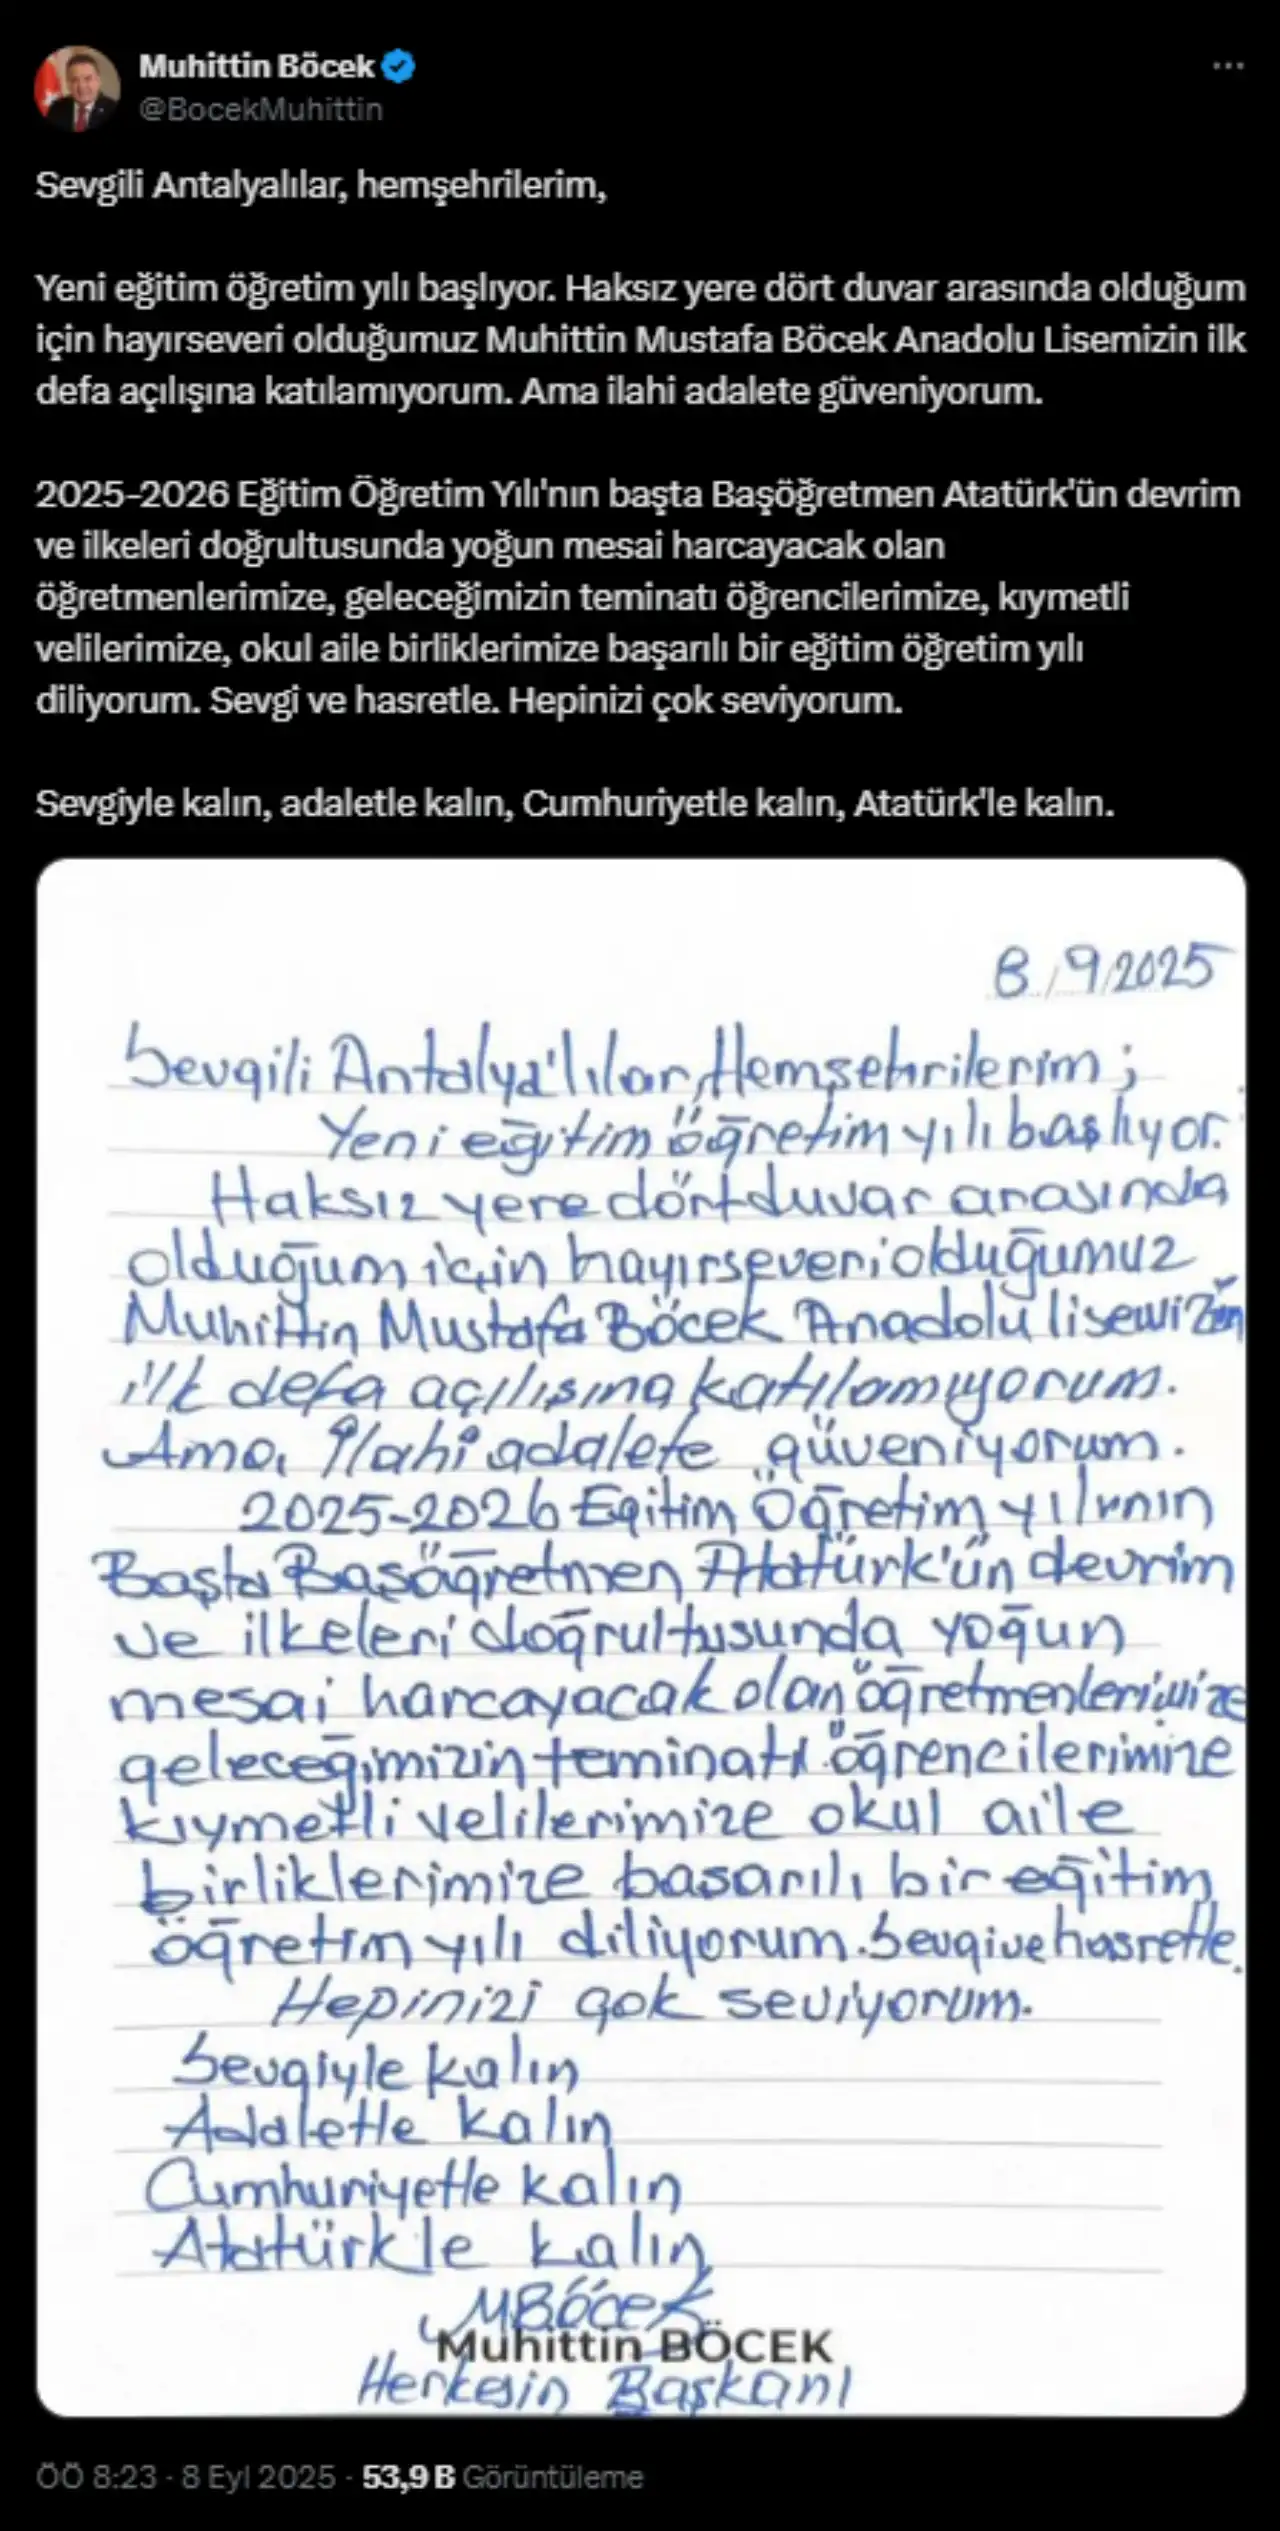 Muhittin Böcek
@BocekMuhittin
Sevgili Antalyalılar, hemşehrilerim,
Yeni eğitim öğretim yılı başlıyor. Haksız yere dört duvar arasında olduğum
için hayırseveri olduğumuz Muhittin Mustafa Böcek Anadolu Lisemizin ilk
defa açılışına katılamıyorum. Ama ilahi adalete güveniyorum.
2025-2026 Eğitim Öğretim Yılı'nın başta Başöğretmen Atatürk'ün devrim
ve ilkeleri doğrultusunda yoğun mesai harcayacak olan
öğretmenlerimize, geleceğimizin teminatı öğrencilerimize, kıymetli
velilerimize, okul aile birliklerimize başarılı bir eğitim öğretim yılı
diliyorum. Sevgi ve hasretle. Hepinizi çok seviyorum.
Sevgiyle kalın, adaletle kalın, Cumhuriyetle kalın, Atatürk'le kalın.
8/9/2025
Sevgili Antalya'lılar, Hemşehrilerim;
Yeni eğitim öğretim yılı başlıyor.
Haksız yere dört duvar arasında
olduğum için hayırseveri olduğumuz
Muhittin Mustafa Böcek Anadolu lisemizin
ilk defa açılışına katılamıyorum.
Ama, İlahi adalete güveniyorum.
2025-2026 Eğitim Öğretim yılı'nın
Başta Başöğretmen Atatürk'ün devrim
ve ilkeleri doğrultusunda yoğun
mesai harcayacak olan öğretmenlerimize
geleceğimizin teminatı öğrencilerimize
kıymetli velilerimize okul aile
birliklerimize basarılı bir eğitim
öğretim yılı diliyorum. Sevgi ve hasretle.
Hepinizi çok seviyorum.
Sevgiyle kalın
Adaletle kalın
Cumhuriyetle kalın
Atatürk'le kalın
MBöcek
Muhittin BÖCEK
Herkesin Başkanı
ÖÖ 8:23 · 8 Eyl 2025 · 53,9 B Görüntüleme